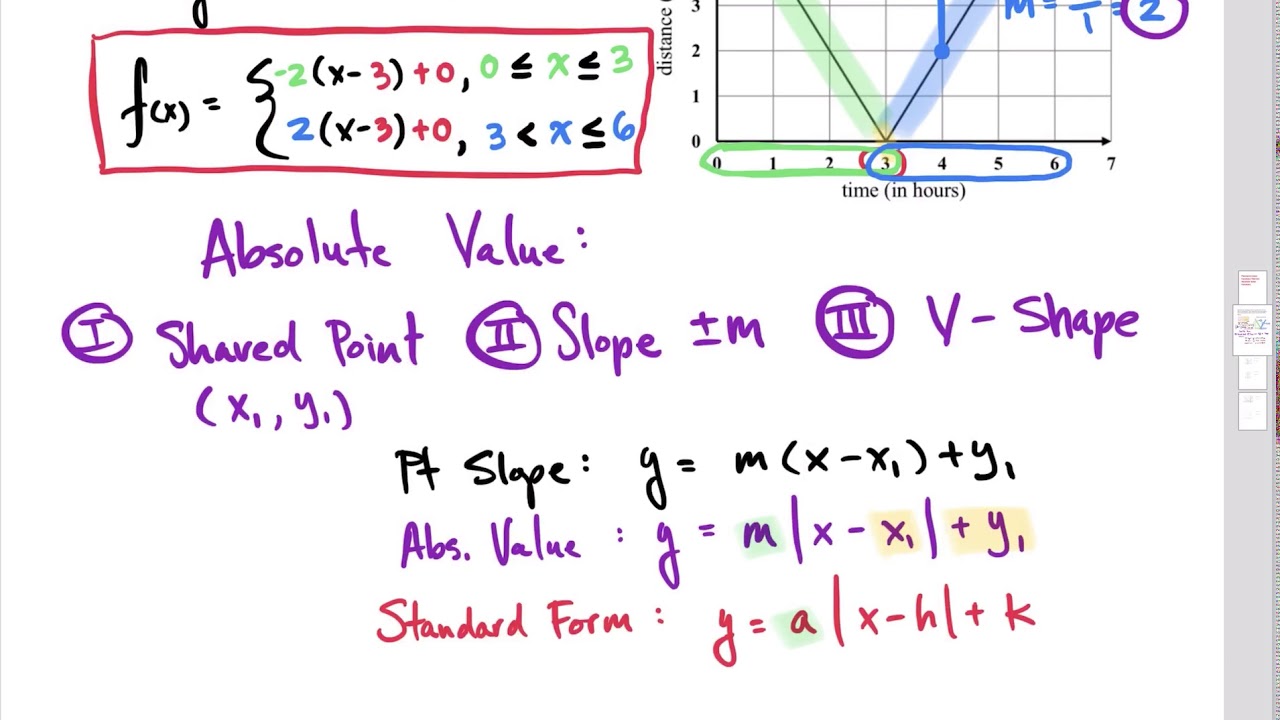 f(x) = { -2(x-3)+0, 0 ≤ x ≤ 3
2(x-3)+0, 3 < x ≤ 6
m = /1 = 2
distance (
3
2
1
0
0 1 2 3 4 5 6 7
time (in hours)
Absolute Value:
I Shared Point II Slope ±m III V-Shape
(x₁, y₁)
Pt Slope: y = m(x-x₁)+y₁
Abs. Value: y = m|x-x₁|+y₁
Standard Form: y = a|x-h|+k